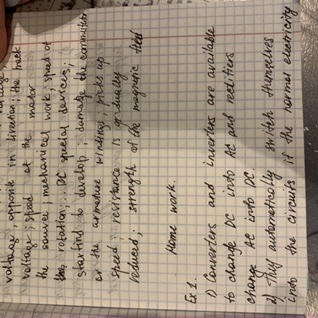 voltage, opposite in direction; the back
voltage; speed of the motor
the source; mechanical work; speed of
rotation; DC special devices;
starting to develop; damage the commutator
or the armature windings; picks up
speed; resistance is gradually
reduced; strength of the magnetic field
Home work.
Ex 1.
1) Converters and inverters are available
to change DC into AC and rectifiers
change AC into DC.
2) They automatically switch themselves
into the circuits if the normal electricity